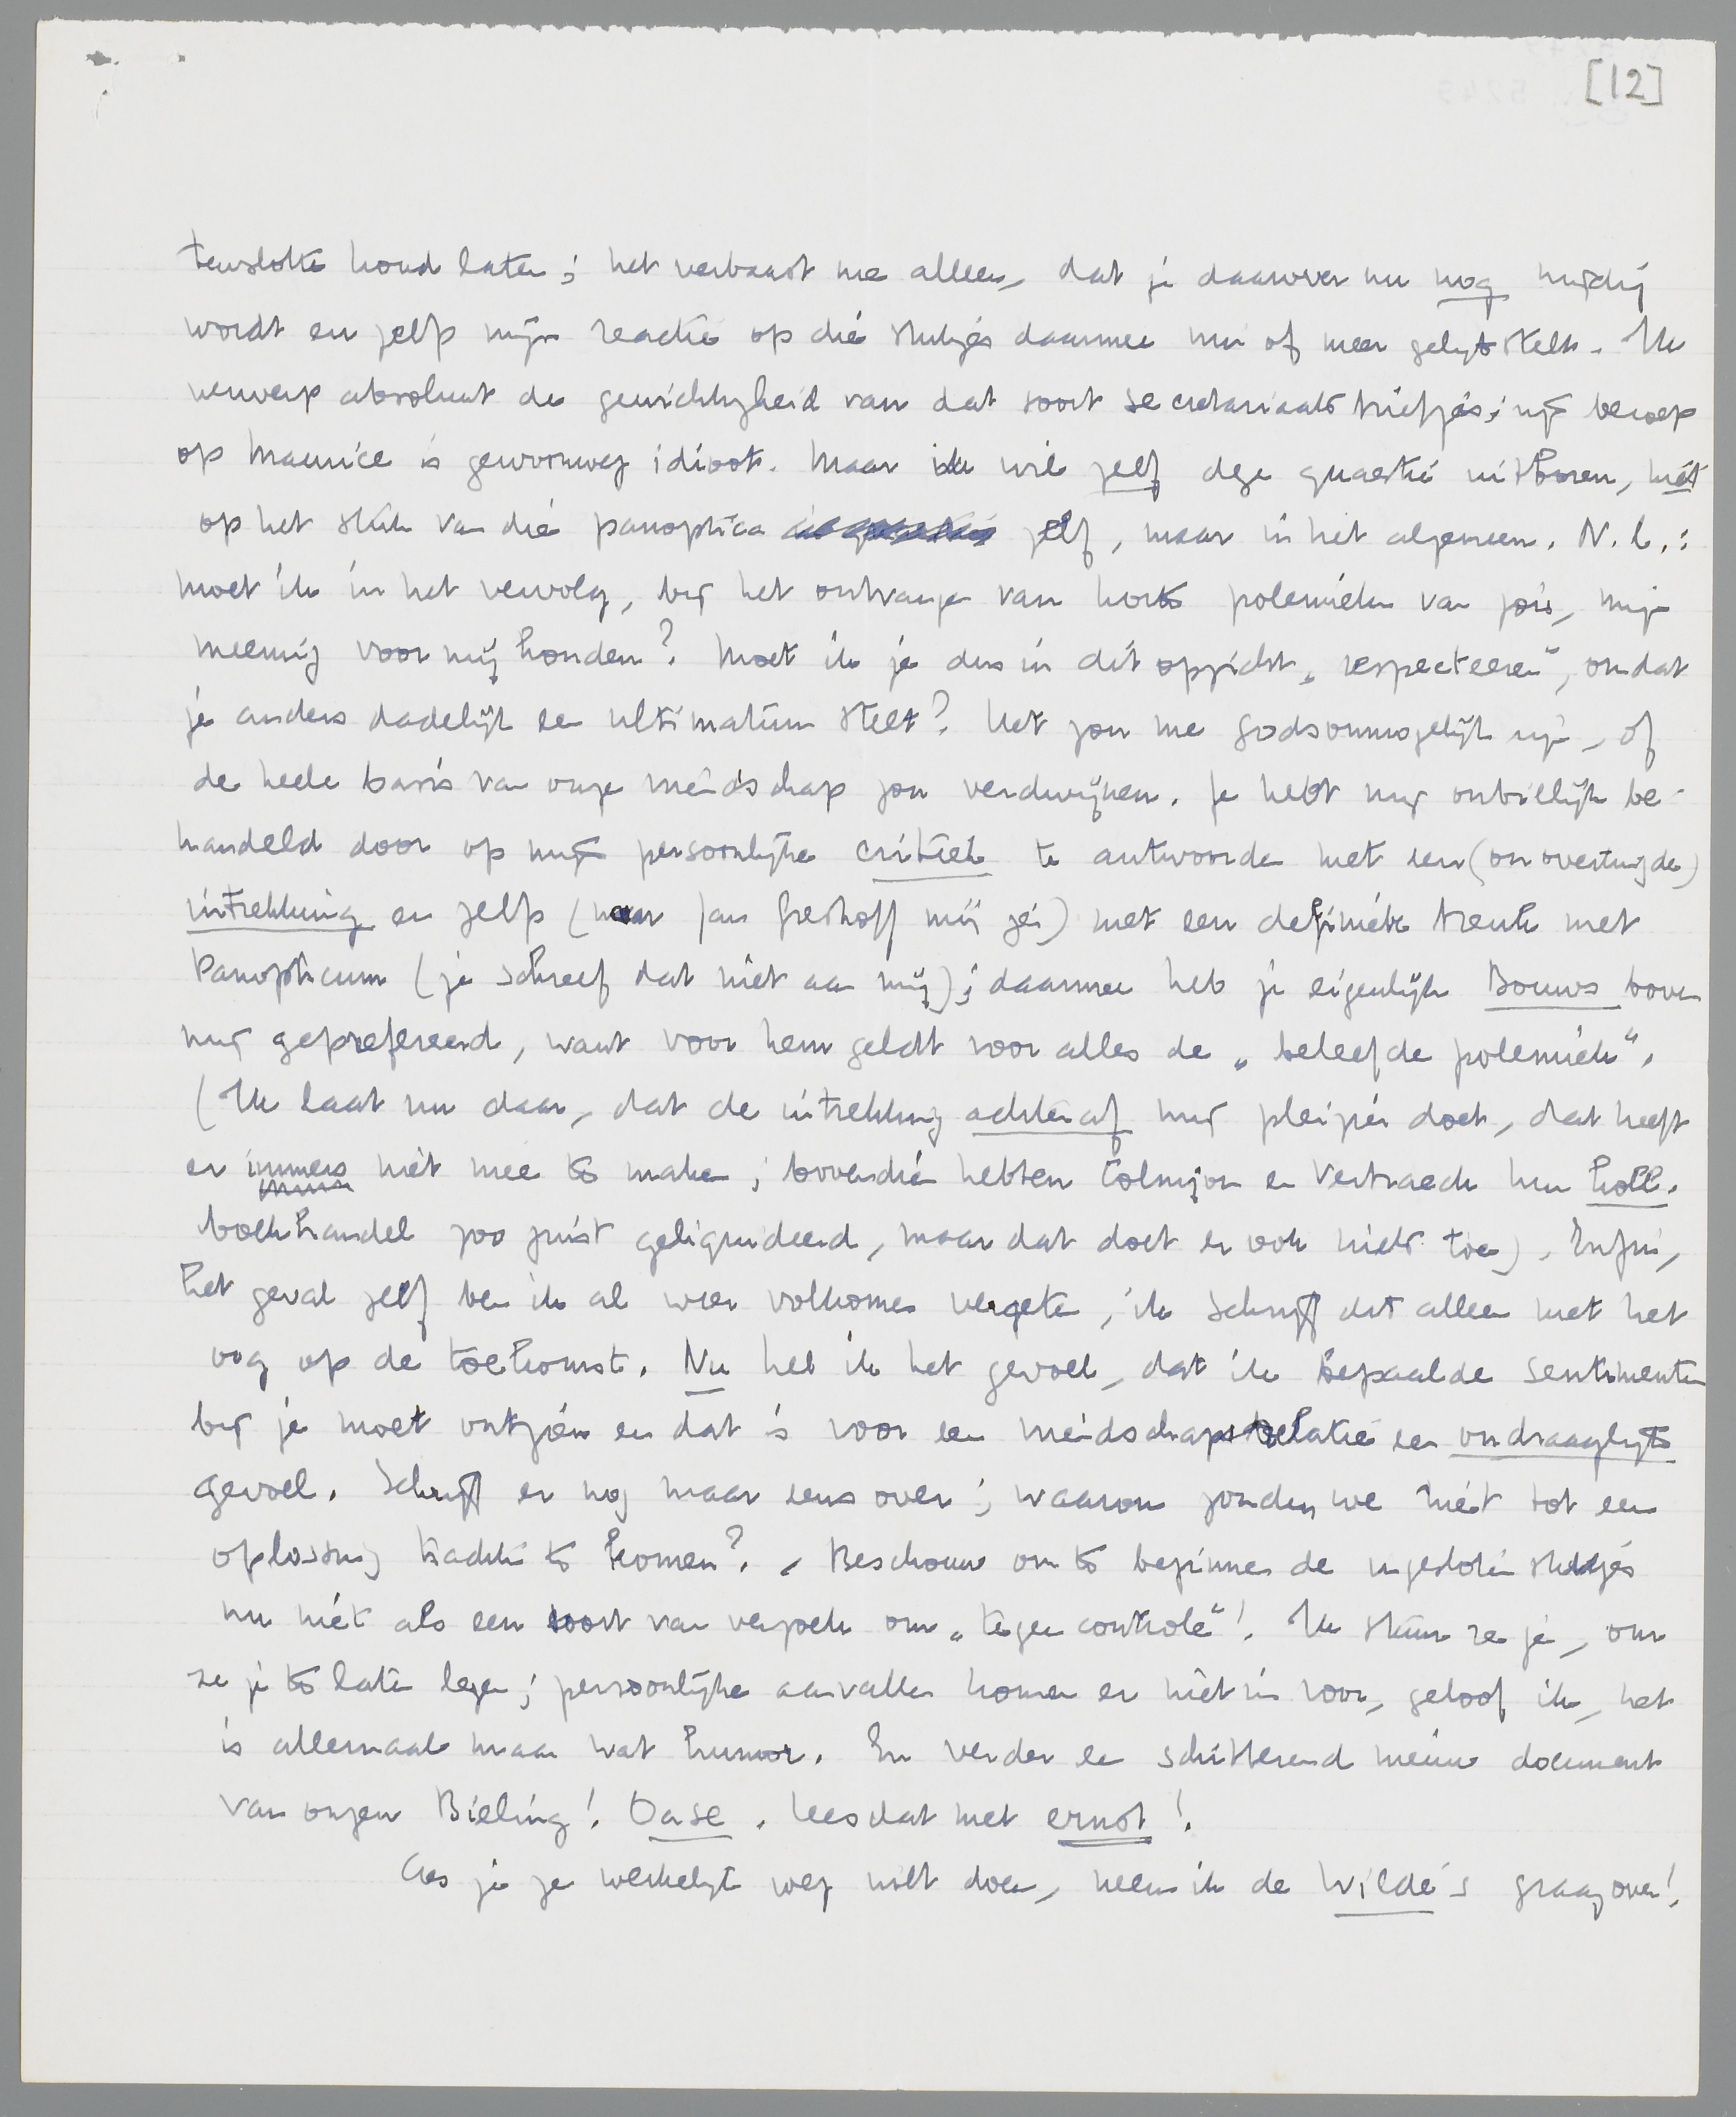 [12]
tenslotte koud laten; het verbaast me alleen, dat je daarover nu nog nijdig
wordt en zelfs mijn reactie op die stukjes daarmee min of meer gelijkstelt. Ik
verwerp absoluut de gewichtigheid van dat soort secretariaatsbriefjes; mijn beroep
op Maurice is gewoonweg idioot. Maar ik wil zelf deze quaestie uitboren, niet
op het stuk van die panoptica zelf, maar in het algemeen. N.l.:
moet ik in het vervolg, bij het ontvangen van korte polemieken van jou, mijn
meening voor mij houden? Moet ik je dus in dit opzicht „respecteeren", omdat
je anders dadelijk een ultimatum stelt? Het zou me godsonmogelijk zijn, of
de heele basis van onze vriendschap zou verdwijnen. Je hebt mij onbillijk be-
handeld door op mijn persoonlijke critiek te antwoorden met een (onovertuigde)
intrekking en zelfs (naar Jan Greshoff mij zei) met een definitieve breuk met
Panopticum (je schreef dat niet aan mij); daarmee heb je eigenlijk Bouws boven
mij geprefereerd, want voor hem geldt voor alles de „beleefde polemiek".
(Ik laat nu daar, dat de intrekking achteraf mij plezier doet, dat heeft
er immers niet mee te maken; bovendien hebben Colmjon en Verbraeck hun Holl.
boekhandel zoo juist geliquideerd, maar dat doet er ook niets toe). Enfin,
het geval zelf ben ik al weer volkomen vergeten, ik schrijf dit alleen met het
oog op de toekomst. Nu heb ik het gevoel, dat ik bepaalde sentimenten
bij je moet ontzien en dat is voor een vriendschapsrelatie een ondraaglijk
gevoel. Schrijf er nog maar eens over; waarom zouden we niet tot een
oplossing trachten te komen? Beschouw om te beginnen de ingesloten stukjes
nu niet als een soort van verzoek om „tegencontrole"! Ik stuur ze je, om
ze je te laten lezen; persoonlijke aanvallen komen er niet in voor, geloof ik, het
is allemaal maar wat humor. En verder een schitterend nieuw document
van onzen Bieling! Oase. Lees dat met ernst!
Als je ze werkelijk weg wilt doen, neem ik de Wilde's graag over!